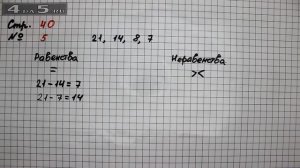 4DA5.RU
Стр. 40
№ 5 21, 14, 8, 7
Равенства Неравенства
= ><
21-14=7
21-7=14